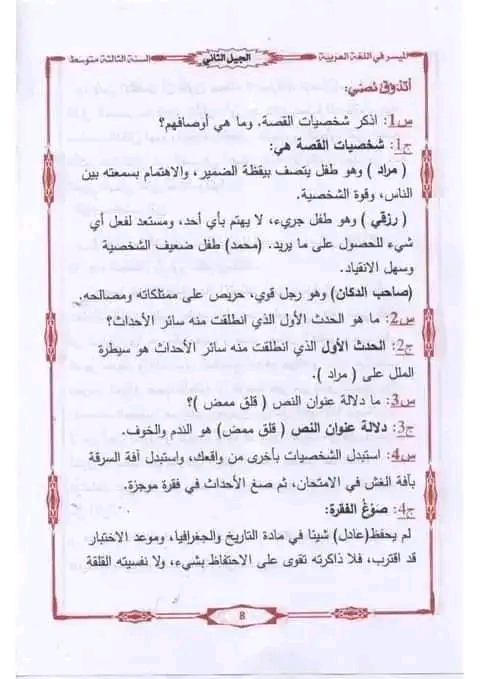 الميسر في اللغة العربية
الجيل الثاني
السنة الثالثة متوسط
أتذوق نصي:
س1: اذكر شخصيات القصة. وما هي أوصافهم؟
ج1: شخصيات القصة هي:
( مراد ) وهو طفل يتصف بيقظة الضمير، والاهتمام بسمعته بين
الناس، وقوة الشخصية.
( رزقي ) وهو طفل جريء، لا يهتم بأي أحد، ومستعد لفعل أي
شيء للحصول على ما يريد. (محمد) طفل ضعيف الشخصية
وسهل الانقياد.
(صاحب الدكان) وهو رجل قوي، حريص على ممتلكاته ومصالحه.
س2: ما هو الحدث الأول الذي انطلقت منه سائر الأحداث؟
ج2: الحدث الأول الذي انطلقت منه سائر الأحداث هو سيطرة
الملل على ( مراد ).
س3: ما دلالة عنوان النص ( قلق ممض )؟
ج3: دلالة عنوان النص ( قلق ممض) هو الندم والخوف.
س4: استبدل الشخصيات بأخرى من واقعك، واستبدل آفة السرقة
بآفة الغش في الامتحان، ثم صغ الأحداث في فقرة موجزة.
ج4: صَوْغُ الفقرة:
لم يحفظ(عادل) شيئا في مادة التاريخ والجغرافيا، وموعد الاختبار قد
قد اقترب، فلا ذاكرته تقوى على الاحتفاظ بشيء، ولا نفسيته القلقة
8